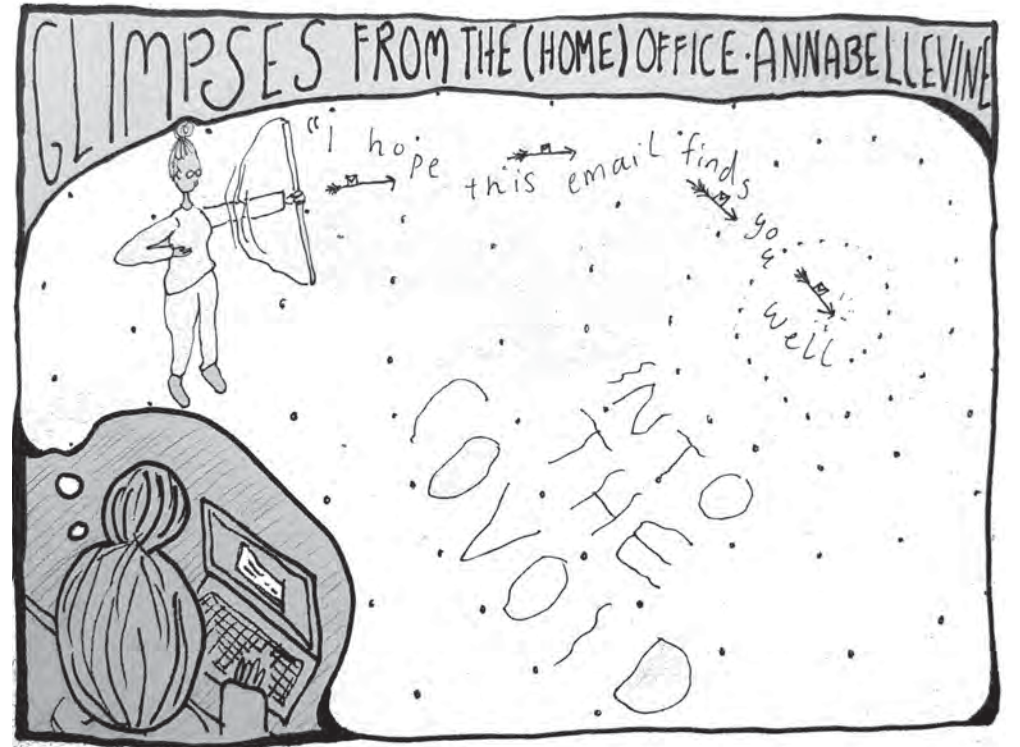 GLIMPSES FROM THE (HOME) OFFICE·ANNABELLEVINE
"I hope this email finds you well
INTO
THE
COVOID